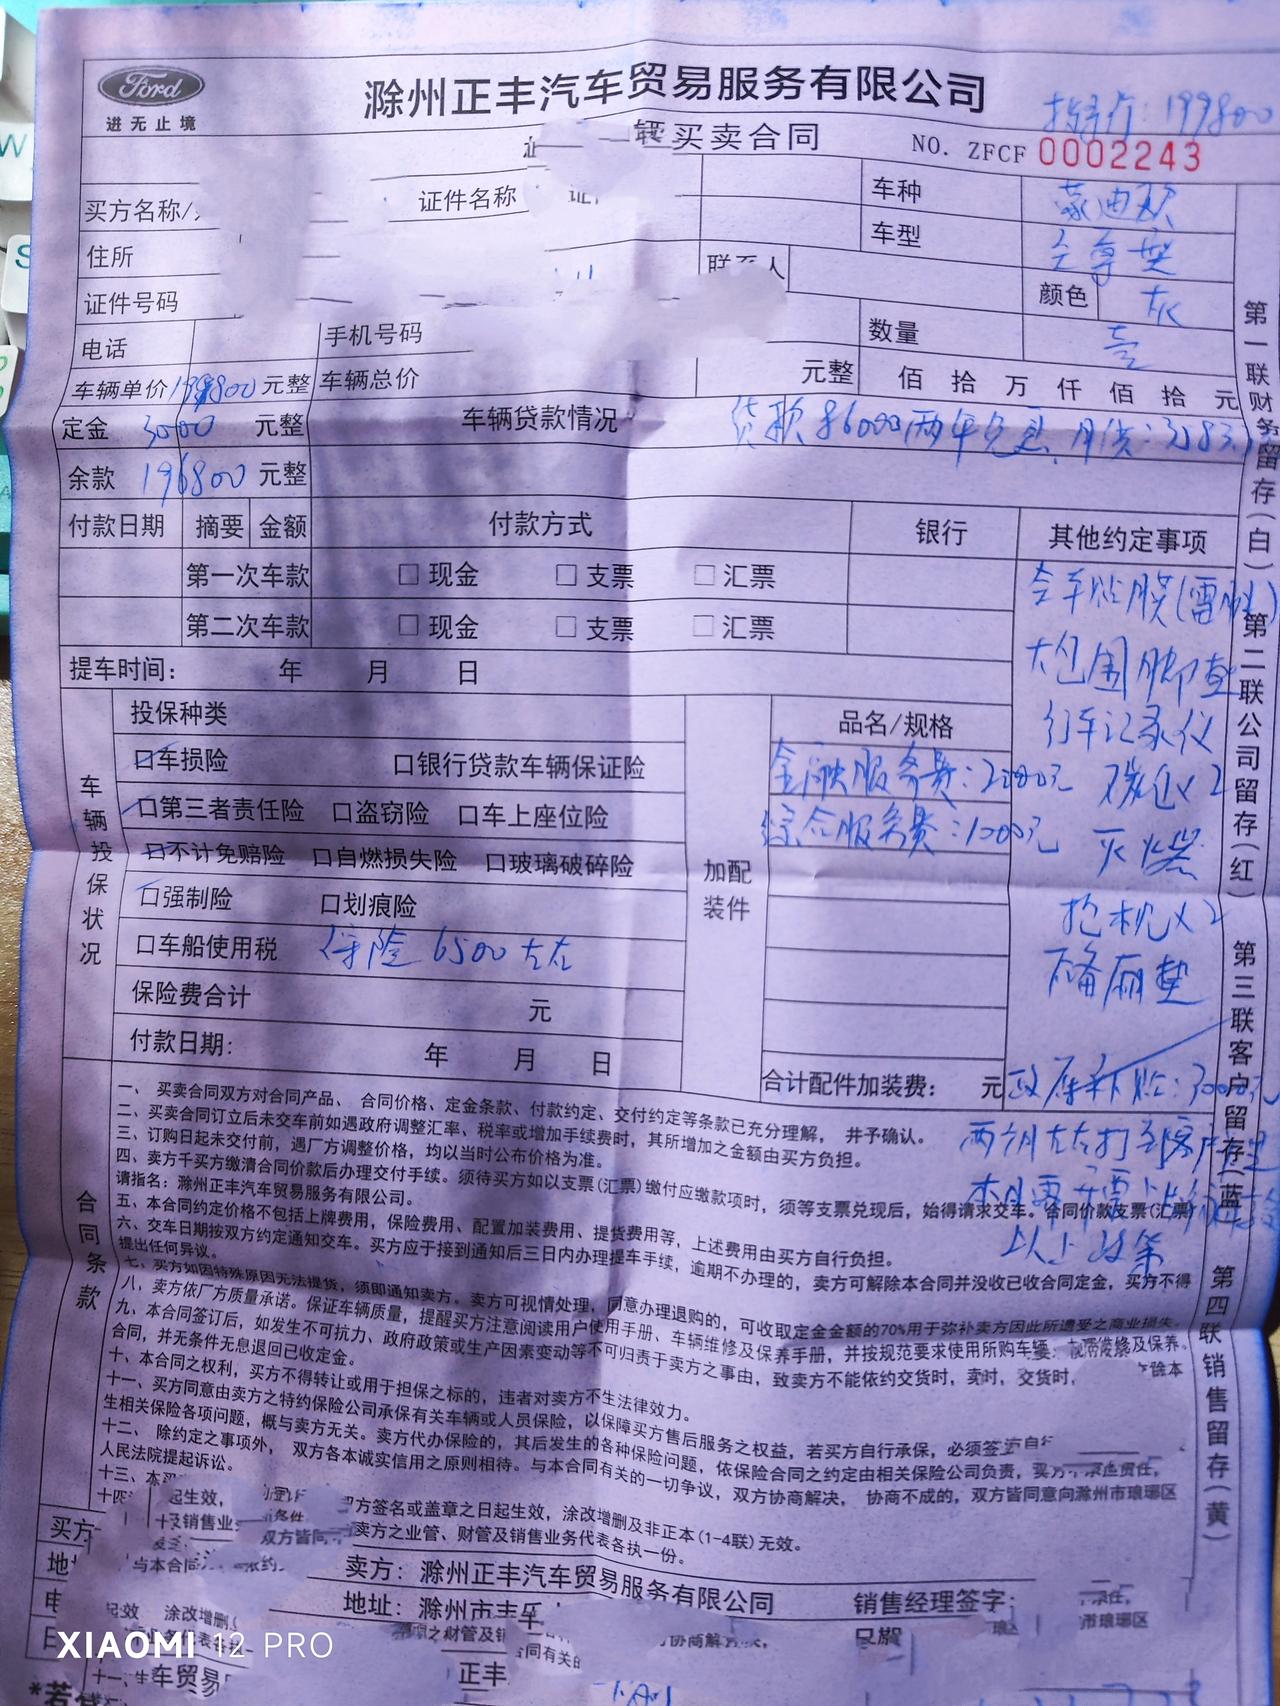 Ford
进无止境
滁州正丰汽车贸易服务有限公司
指导价:199800
买卖合同
NO. ZFCF 0002243
买方名称/
证件名称
车种 蒙迪欧
住所
车型 至尊型
联系人
颜色 灰
证件号码
电话
手机号码
数量 壹
车辆单价 元整
车辆总价 元整 佰 拾 万 仟 佰 拾 元
定金 3000 元整
车辆贷款情况 贷款86000两年免息,月供:3583
余款 196800 元整
付款日期 摘要 金额 付款方式 银行 其他约定事项
第一次车款 □ 现金 □ 支票 □ 汇票
第二次车款 □ 现金 □ 支票 □ 汇票
全车贴膜(雷朋)
大包围脚垫
行车记录仪
碳包×2
灭火器
抱枕×2
后备厢垫
提车时间: 年 月 日
车辆投保状况
投保种类
□车损险 □银行贷款车辆保证险
□第三者责任险 □盗窃险 □车上座位险
□不计免赔险 □自燃损失险 □玻璃破碎险
□强制险 □划痕险
□车船使用税 保险6500左右
保险费合计 元
付款日期: 年 月 日
加配装件
品名/规格
金融服务费:2000元
综合服务费:1000元
合计配件加装费: 元
政府补贴:3000元
两个月左右打到客户
以上政策
合同条款
一、 买卖合同双方对合同产品、 合同价格、定金条款、付款约定、交付约定等条款已充分理解, 并予确认。
二、买卖合同订立后未交车前如遇政府调整汇率、税率或增加手续费时,其所增加之金额由买方负担。
三、订购日起未交付前,遇厂方调整价格,均以当时公布价格为准。
四、卖方于买方缴清合同价款后办理交付手续。须待买方如以支票(汇票)缴付应缴款项时,须等支票兑现后,始得请求交车。合同价款支票(汇票)
请指名:滁州正丰汽车贸易服务有限公司。
五、本合同约定价格不包括上牌费用,保险费用、配置加装费用、提货费用等,上述费用由买方自行负担。
六、交车日期按双方约定通知交车。买方应于接到通知后三日内办理提车手续,逾期不办理的,卖方可解除本合同并没收已收合同定金,买方不得
提出任何异议。
七、买方如因特殊原因无法提货,须即通知卖方。卖方可视情处理,同意办理退购的,可收取定金金额的70%用于弥补卖方因此所遭受之商业损失。
八、卖方依厂方质量承诺。保证车辆质量,提醒买方注意阅读用户使用手册、车辆维修及保养手册,并按规范要求使用所购车辆、
九、本合同签订后,如发生不可抗力、政府政策或生产因素变动等不可归责于卖方之事由,致卖方不能依约交货时,
合同,并无条件无息退回已收定金。
十、本合同之权利,买方不得转让或用于担保之标的,违者对卖方不生法律效力。
十一、买方同意由卖方之特约保险公司承保有关车辆或人员保险,以保障买方售后服务之权益,若买方自行承保,必须签
生相关保险各项问题,概与卖方无关。卖方代办保险的,其后发生的各种保险问题,依保险合同之约定由相关保险公司负责,
十二、 除约定之事项外, 双方各本诚实信用之原则相待。与本合同有关的一切争议,双方协商解决, 协商不成的,双方皆同意向滁州市琅琊区
人民法院提起诉讼。
十三、
方签名或盖章之日起生效,涂改增删及非正本(1-4联)无效。
十四、
卖方之业管、财管及销售业务代表各执一份。
买方
卖方:滁州正丰汽车贸易服务有限公司
销售经理签字:
地址:滁州市丰乐
第一联财务留存(白)
第二联公司留存(红)
第三联客户留存(蓝)
第四联销售留存(黄)
XIAOMI 12 PRO